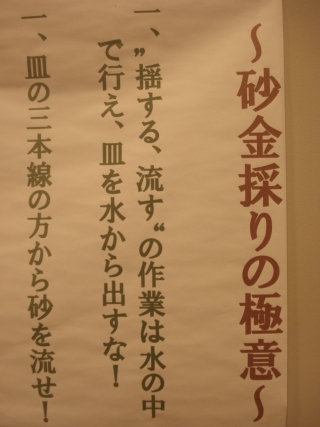 ～砂金採りの極意～
一、〝揺する、流す〟の作業は水の中
で行え、皿を水から出すな！
一、皿の三本線の方から砂を流せ！